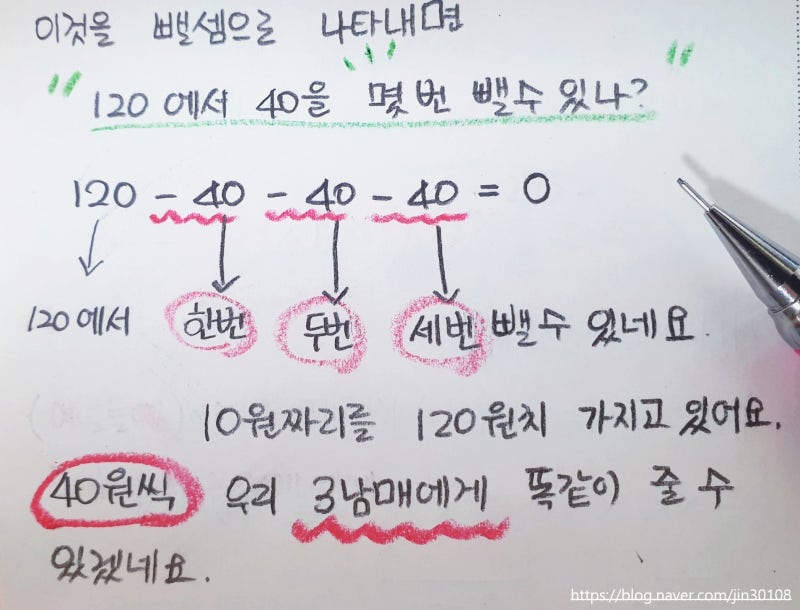 이것을 뺄셈으로 나타내면
"120에서 40을 몇번 뺄수있나?"
120 - 40 - 40 - 40 = 0
120에서 한번 두번 세번 뺄수 있네요.
10원짜리를 120원치 가지고 있어요.
40원씩 우리 3남매에게 똑같이 줄 수
있겠네요.
https://blog.naver.com/jin30108